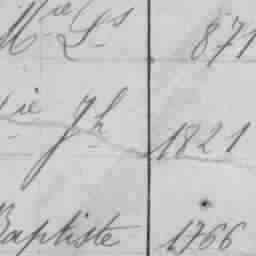 Mie Ls 871
ie Jh 1821
Baptiste 1766